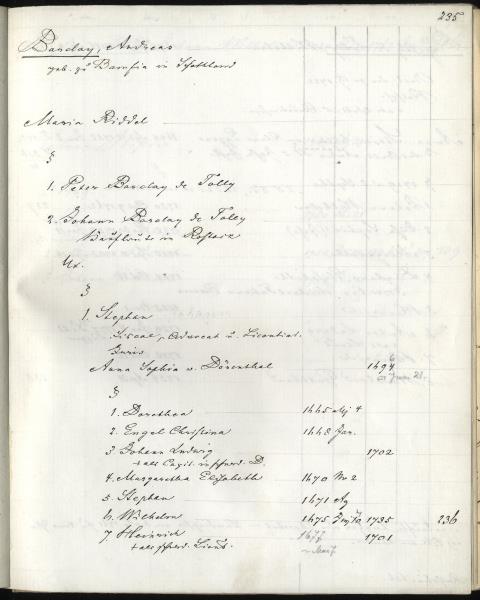 235
Barclay, Andreas
geb. zu Bamfia in Schottland
Maria Riddel
§
1. Peter Barclay de Tolly
2. Johann Barclay de Tolly
Kaufleute in Rostock
Ux.
§
1. Stephan
Fiscal, Advocat u. Licentiat.
Juris
Anna Sophia v. Dörenthal 1694
§
1. Dorothea 1665 4
2. Engel Christina 1668 Jan.
3. Johann Ludwig 1702
+ als Capit. in schwed. D.
4. Margaretha Elizabeth 1670 2
5. Stephan 1671 Ag
6. Wilhelm 1675 1735 236
7. Heinrich 1677 1701
+ als schwed. Lieut.